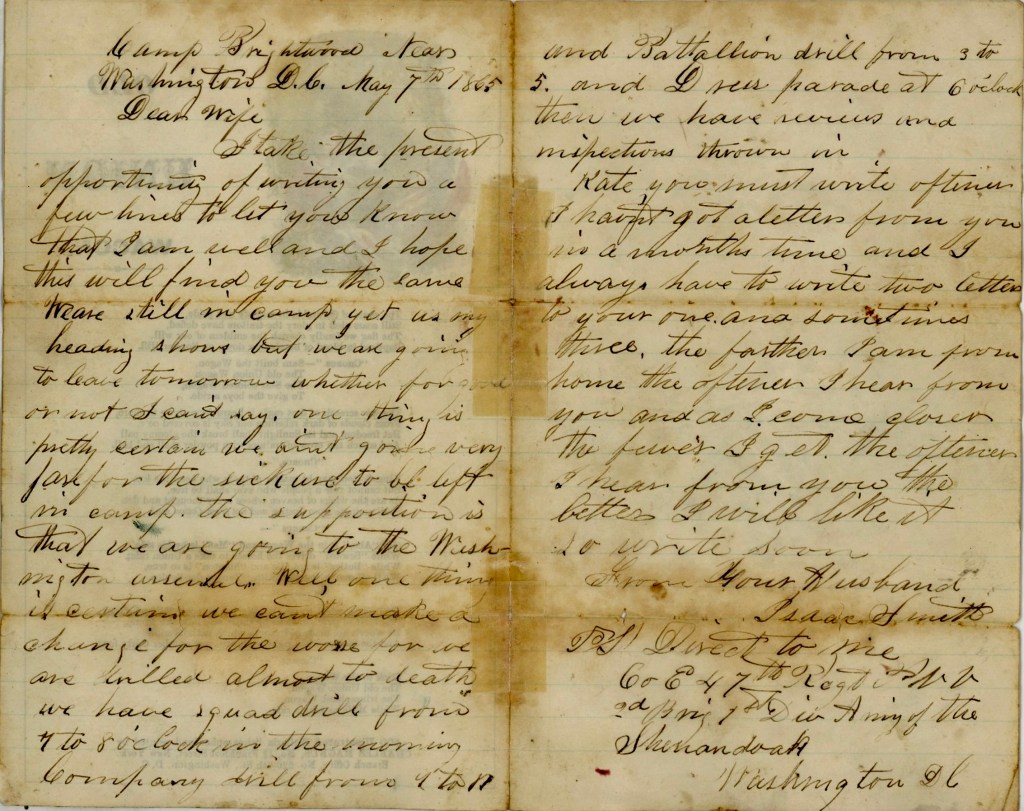 Camp Brightwood Near
Washington D.C. May 7th 1865
Dear Wife
I take the present
opportunity of writing you a
few lines to let you know
that I am well and I hope
this will find you the same
We are still in camp yet as my
heading shows but we are going
to leave tomorrow whether for
or not I cant say. one thing is
pretty certain we aint going very
far for the sick are to be left
in camp. the supposition is
that we are going to the Wash-
ington arsenal. Well one thing
is certain we cant make a
change for the worse for we
are drilled almost to death
we have squad drill from
7 to 8 o'clock in the morning
Company drill from 9 to 11
and Battallion drill from 3 to
5. and Dress parade at 6 o'clock
then we have reviews and
inspections thrown in
Kate you must write oftener
I haint got a letter from you
in a months time and I
always have to write two letters
to your one. and sometimes
three. the farther I am from
home the oftener I hear from
you and as I come closer
the fewer I get. the oftener
I hear from you the
better I will like it
so write soon
From Your Husband
Isaac Smith
PS Direct to me
Co E 47th Regt V V
2d Brig 1st Div Army of the
Shenandoah
Washington DC